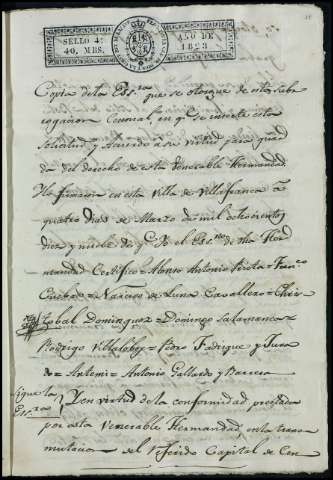 SELLO 4º
40. MRS.
AÑO DE
1828
Copia de la Ess.ra que se otorgue de esta sub
rogacion Censual, en q.e se inserte esta
solicitud y Acuerdo a su virtud para guar
da del derecho de esta Venerable Hermandad
Lo firmaron en esta Villa de Villafranca a
quatro dias de Marzo de mil ochocientos
diez y nuebe de q.e Yo el Esc.no de dha Her
mandad Certifico = Alonso Antonio = Fran.co
= Narciso de Luna Cavallero = Chris
tobal Dominguez = Domingo Salamanca =
Rodrigo Villalobos = Pedro Fadrique y Jura
do = Antemi = Antonio Gallardo y Barrera
Sigue la
Ess.ra
Y en virtud de la conformidad prestada
por esta Venerable Hermandad, en la trans
mutacion del referido Capital de Cen